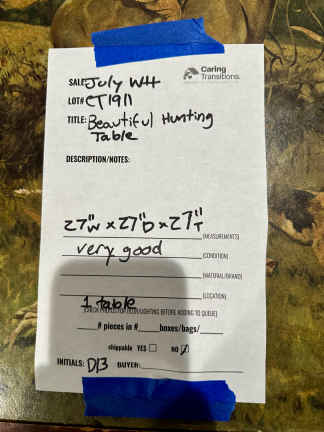 Caring
Transitions.
SALE: July WH
LOT# CT1911
TITLE: Beautiful Hunting
Table
DESCRIPTION/NOTES:
27"W x 27"D x 27"T
(MEASUREMENTS)
very good
(CONDITION)
(MATERIAL/BRAND)
(LOCATION)
1 table
BEFORE ADDING TO QUEUE)
# pieces in # boxes/bags/
shippable YES NO
INITIALS: DB BUYER: